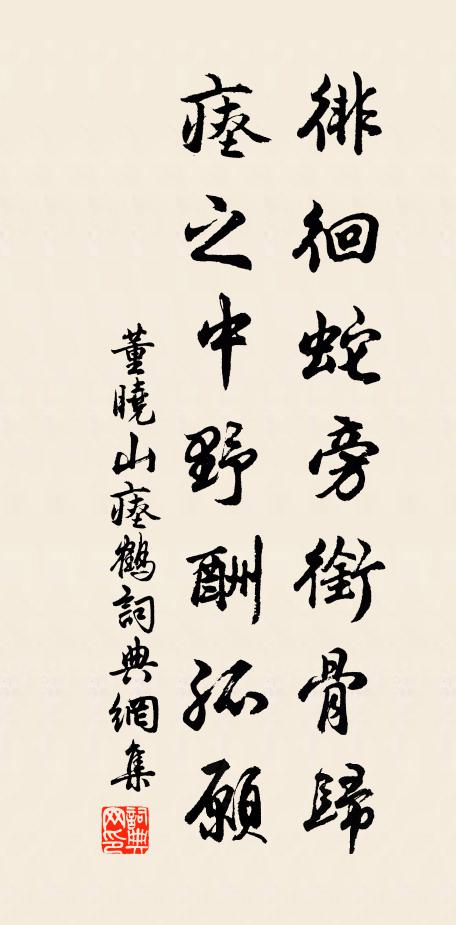 徘徊蛇旁銜骨歸
瘞之中野酬孤願
董曉山瘞鶴詞典網集
詞典網印